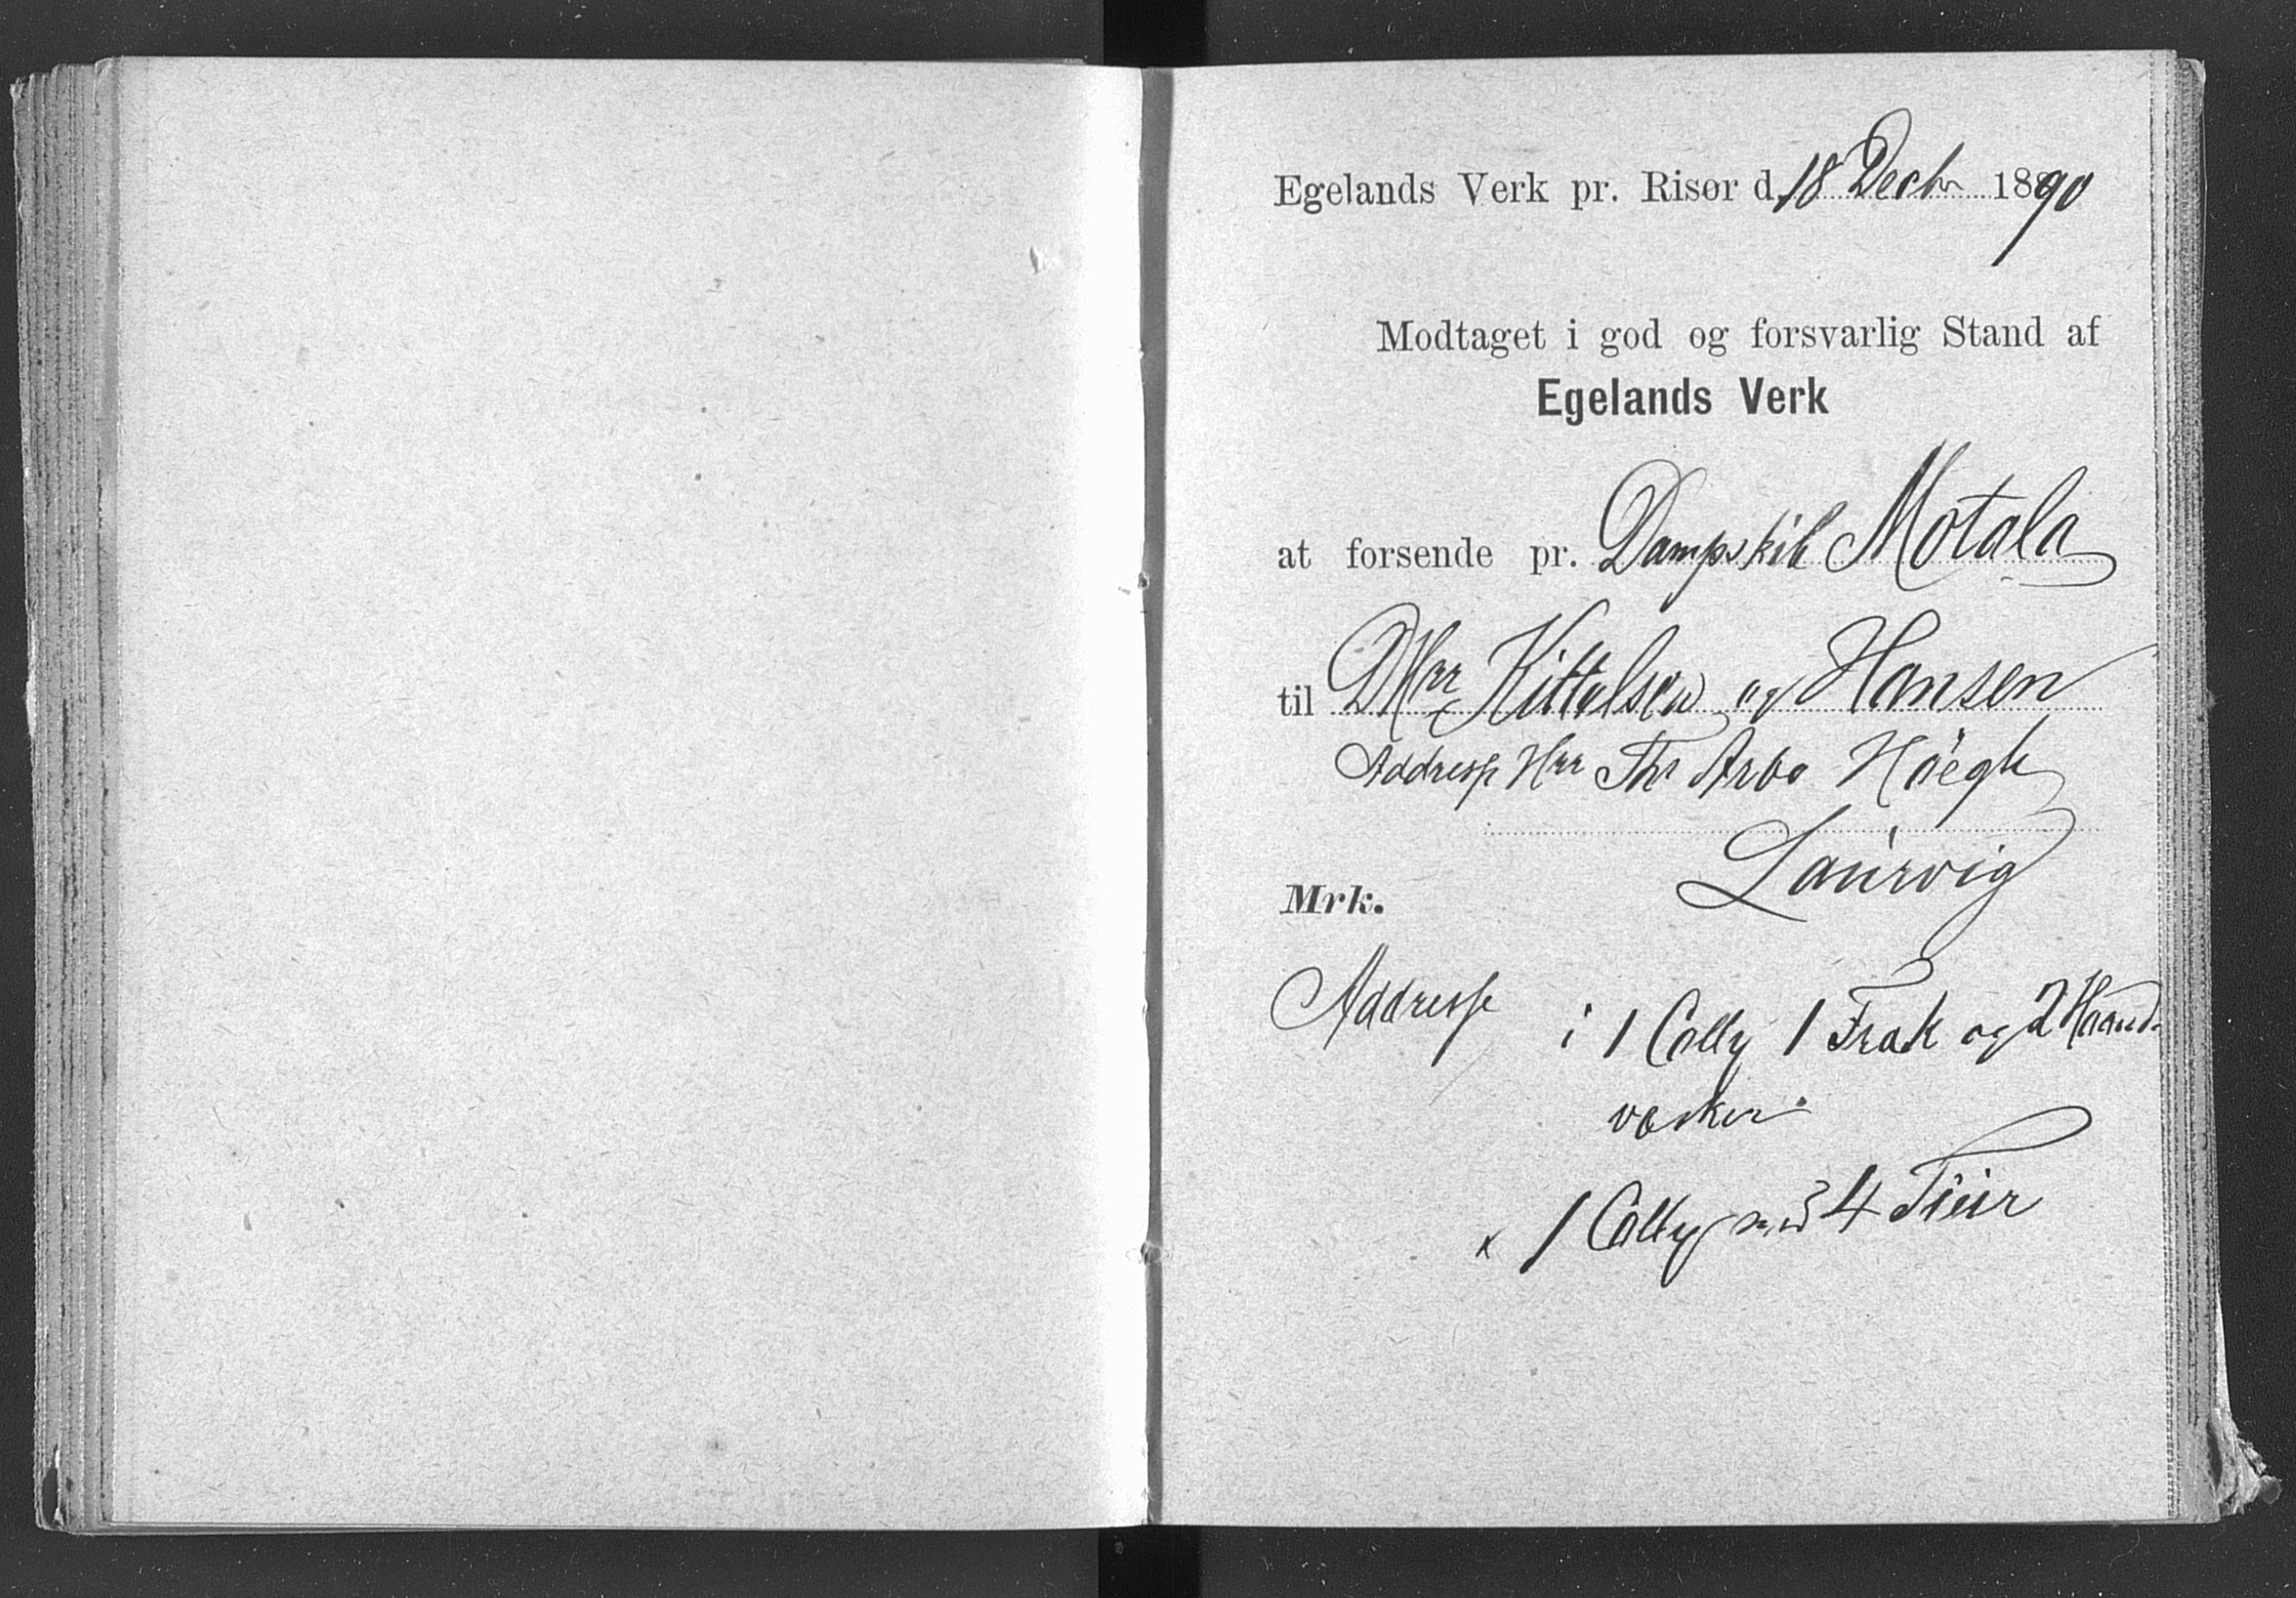 Egelands Verk pr. Risør d. 18 Decbr 1890
Modtaget i god og forsvarlig Stand af
Egelands Verk
at forsende pr. Dampskib Motala
til DHrr Kittelsen og Hansen
Addresse Hrr Thr Arbo Høegh
Laurvig
Mrk.
Addresse
i 1 Colly 1 Frak og 2 Haand-
væsker
1 Colly med 4